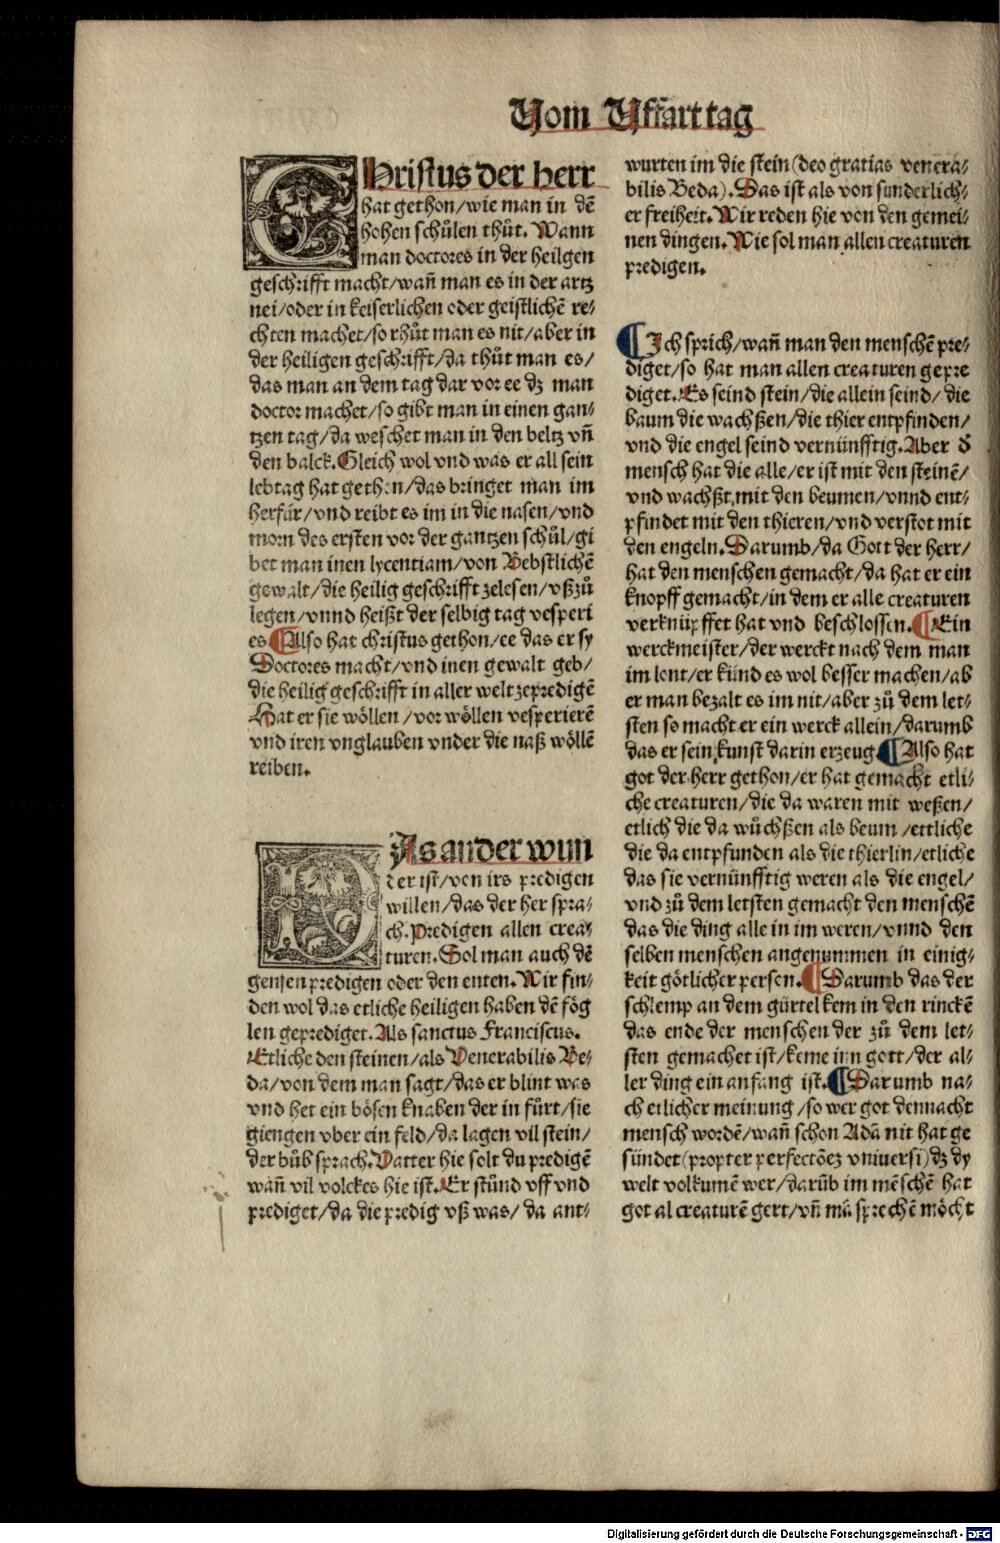 Vom Uffart tag
CHristus der herr
hat gethon/wie man in dē
hohen schůlen thůt. Wann
man doctores in der heilgen
geschrifft macht/wañ man es in der artz
nei/oder in keiserlichen oder geistlichē re⸗
chten machet/so thůt man es nit/aber in
der heiligen geschrifft/da thůt man es/
das man an dem tag dar vor ee dz man
doctor machet/so gibt man in einen gan⸗
tzen tag/da weschet man in den beltz vñ
den balck. Gleich wol vnd was er all sein
lebtag hat gethon/das bringet man im
herfür/vnd reibt es im in die nasen/vnd
morn des ersten vor der gantzen schůl/gi
bet man inen lycentiam/von Bebstlichē
gewalt/die heilig geschrifft zelesen/vßzů
legen/vnnd heißt der selbig tag vesperi
es. ¶Also hat christus gethon/ee das er sy
Doctores macht/vnd inen gewalt geb/
die heilig geschrifft in aller welt zepredigē
Hat er sie wöllen/vor wöllen vesperierē
vnd iren vnglauben vnder die naß wöllē
reiben.
DAs ander wun
der ist/von irs predigen
willen/das der her spra⸗
ch. Predigen allen crea⸗
turen. Sol man auch dē
gensen predigen oder den enten. Wir fin⸗
den wol das etliche heiligen haben dē fög
len geprediget. Als sanctus Franciscus.
Etliche den steinen/als Venerabilis Be⸗
da/von dem man sagt/das er blint was
vnd het ein bösen knaben der in fůrt/sie
giengen vber ein feld/da lagen vil stein/
der bůb sprach. Vatter hie solt du predigē
wañ vil volckes hie ist. Er stůnd vff vnd
prediget/da die predig vß was/da ant⸗
wurten im die stein (deo gratias venera⸗
bilis Beda). Das ist als von sunderlich⸗
er freiheit. Wir reden hie von den gemei⸗
nen dingen. Wie sol man allen creaturen
predigen.
¶Ich sprich/wañ man den menschē pre⸗
diget/so hat man allen creaturen gepre
diget. Es seind stein/die allein seind/die
baum die wachßen/die thier entpfinden/
vnd die engel seind vernünfftig. Aber d̄
mensch hat die alle/er ist mit den steinē/
vnd wachßt mit den beumen/vnnd ent⸗
pfindet mit den thieren/vnd verstot mit
den engeln. Darumb/da Gott der herr/
hat den menschen gemacht/da hat er ein
knopff gemacht/in dem er alle creaturen
verknüpffet hat vnd beschlossen. ¶Ein
werckmeister/der werckt nach dem man
im lont/er künd es wol besser machen/ab
er man bezalt es im nit/aber zů dem let⸗
sten so macht er ein werck allein/darumb
das er sein kunst darin erzeug ¶Also hat
got der herr gethon/er hat gemacht etli⸗
che creaturen/die da waren mit weßen/
etlich die da wůchßen als beum/ettliche
die da entpfunden als die thierlin/etliche
das sie vernünfftig weren als die engel/
vnd zů dem letsten gemacht den menschē
das die ding alle in im weren/vnnd den
selben menschen angenummen in einig⸗
keit götlicher person. ¶Darumb das der
schlemp an dem gürtel kem in den rinckē
das ende der menschen der zů dem let⸗
sten gemachet ist/keme inn gott/der al⸗
ler ding ein anfang ist. ¶Darumb na⸗
ch etlicher meinung/so wer got dennacht
mensch wordē/wañ schon Adā nit hat ge
sündet (propter perfectōez vniuersi) dz dy
welt volkumē wer/darūb im mēschē hat
got al creaturē gert/vñ mā sprechē möcht
Digitalisierung gefördert durch die Deutsche Forschungsgemeinschaft - DFG